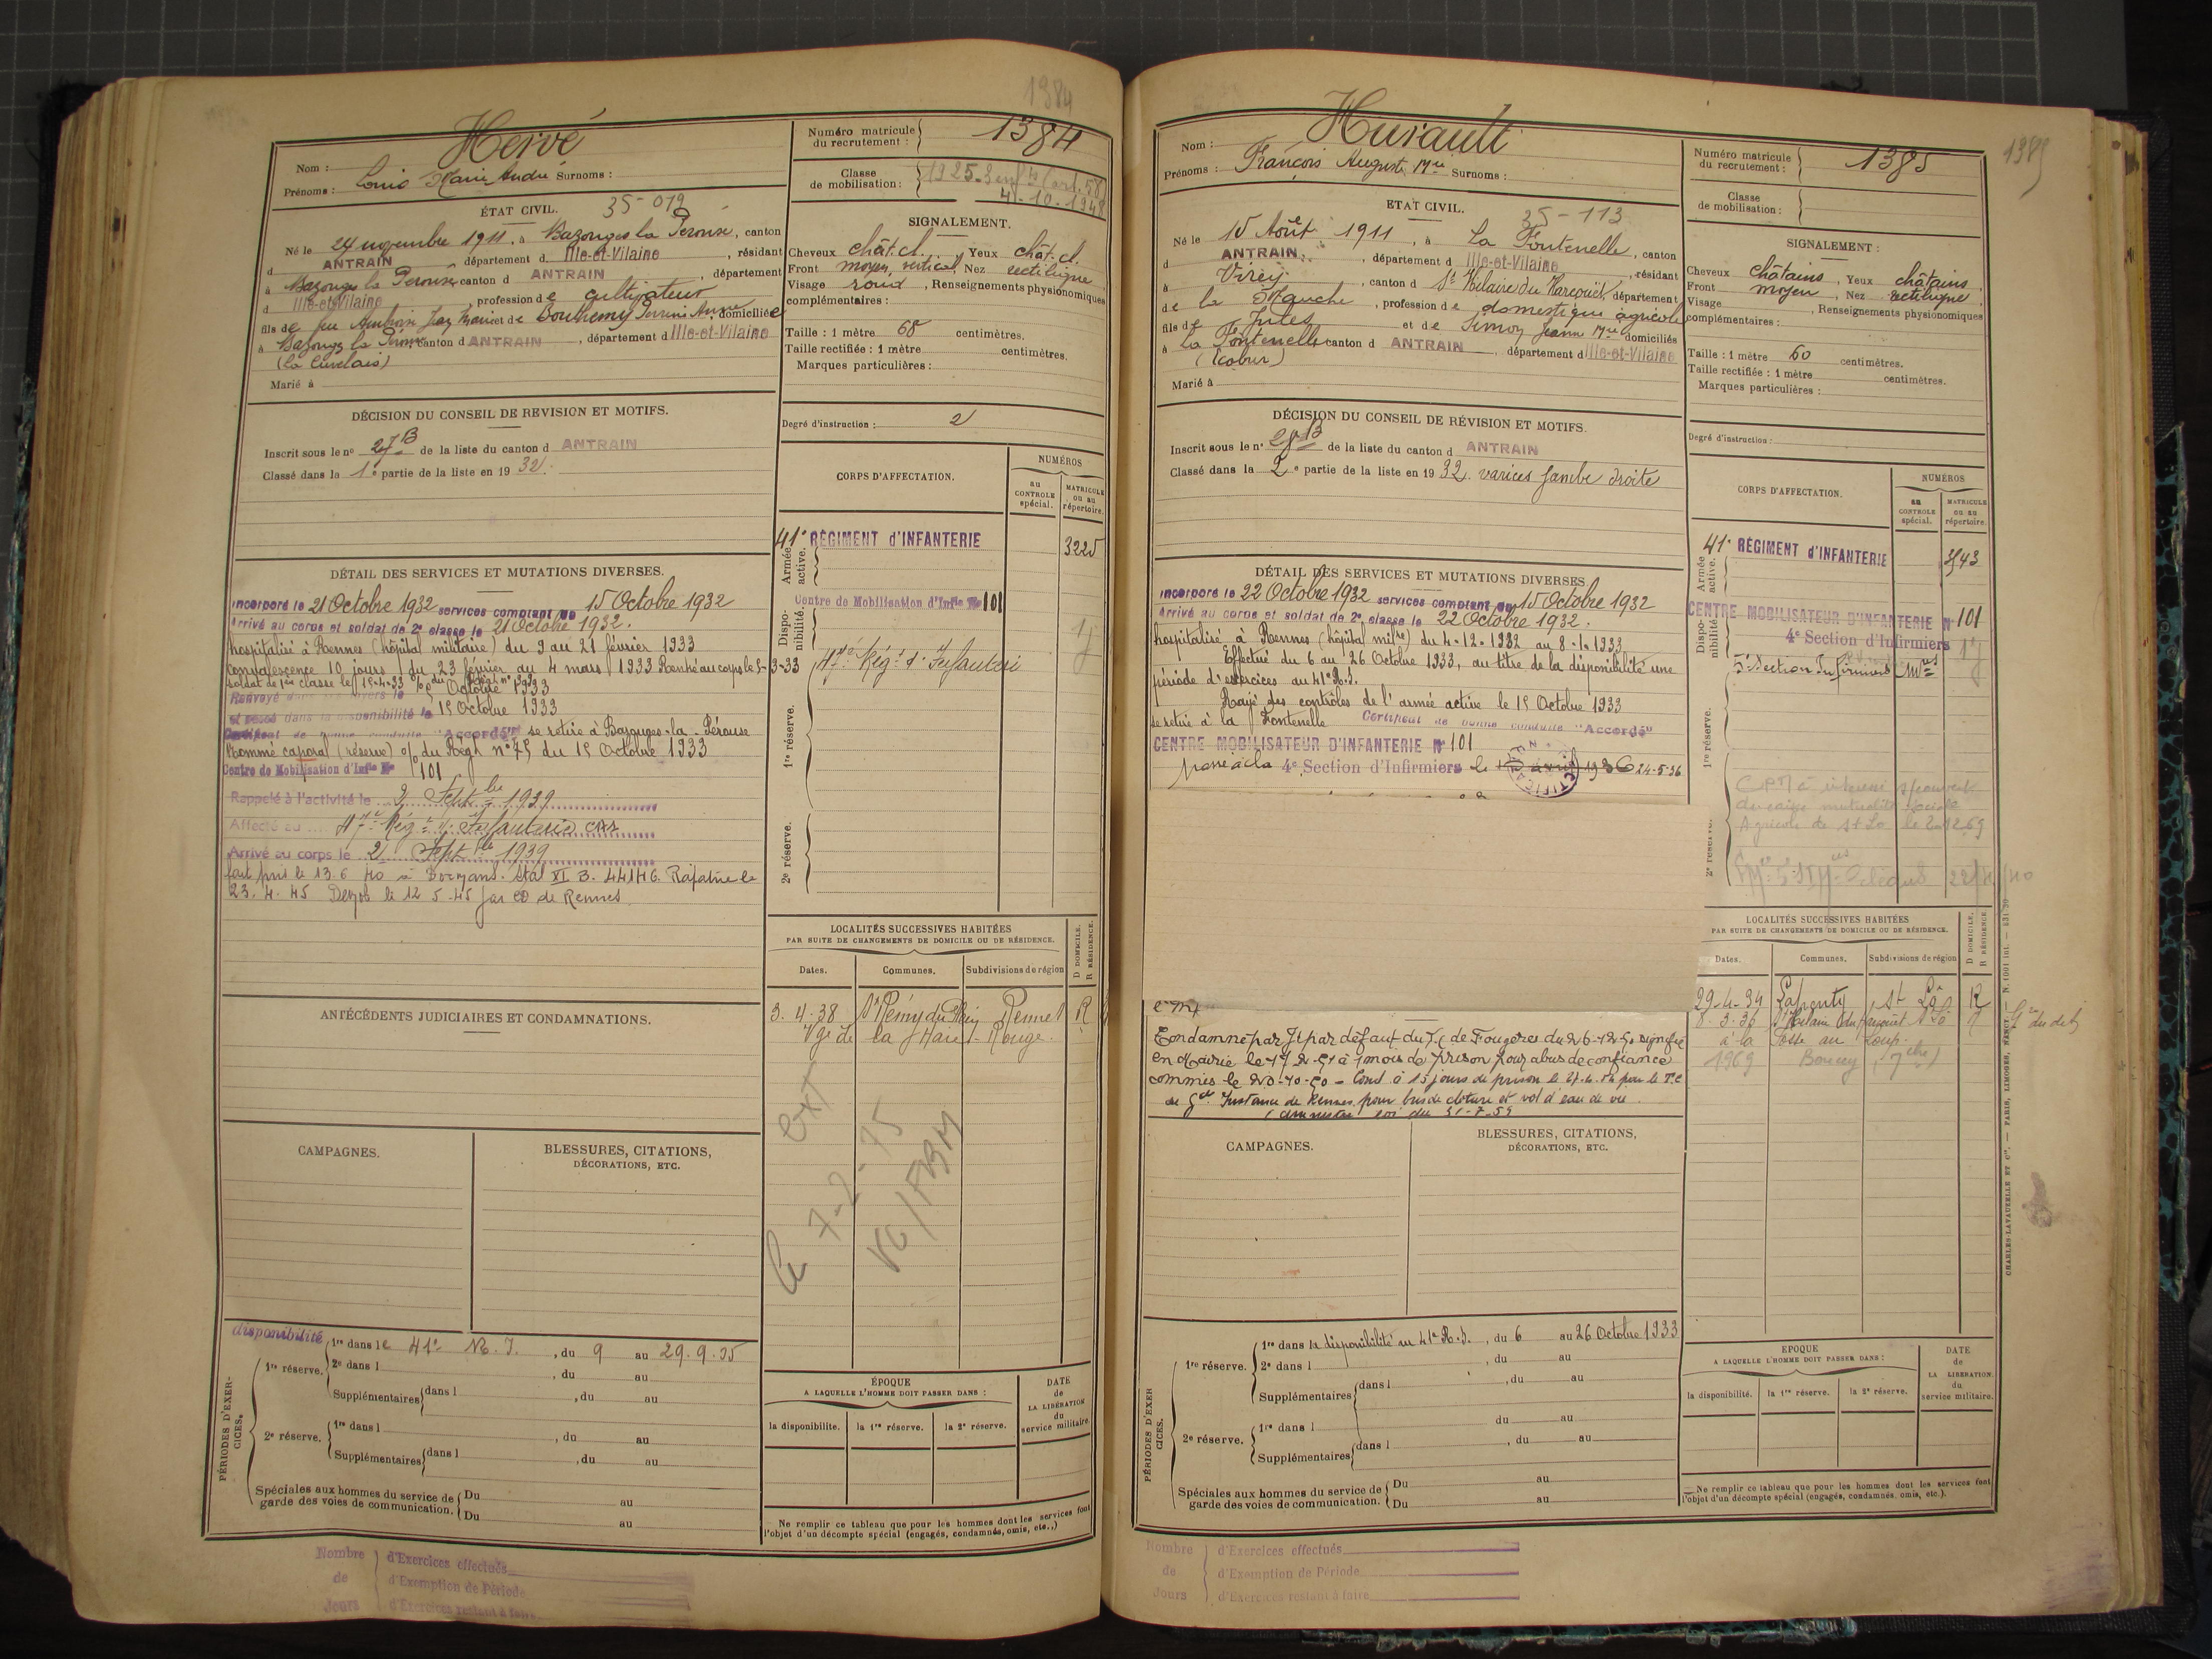 1384
Nom : Hervé
Prénoms : Louis Marie André Surnoms :
Numéro matricule du recrutement : 1384
Classe de mobilisation : 1925-3 enfts (art. 58)
4-10-1948
ÉTAT CIVIL. 35-019
Né le 24 novembre 1911, à Bazouges la Pérouse, canton
d ANTRAIN, département d Ille-et-Vilaine, résidant
à Bazouges la Pérouse canton d ANTRAIN, département
d Ille-et-Vilaine, profession de cultivateur
fils de feu Ambroise Jean Marie et de Bouthemy Perrine Anne domiciliée
à Bazouges la Pérouse canton d ANTRAIN, département d Ille-et-Vilaine
Marié à
SIGNALEMENT.
Cheveux chât. cl. Yeux chât. cl.
Front moyen, vertical, Nez rectiligne
Visage rond, Renseignements physionomiques
complémentaires :
Taille : 1 mètre 68 centimètres.
Taille rectifiée : 1 mètre centimètres.
Marques particulières :
Degré d'instruction : 2
DÉCISION DU CONSEIL DE REVISION ET MOTIFS.
Inscrit sous le no 27 B de la liste du canton d ANTRAIN
Classé dans la 1e partie de la liste en 1932.
CORPS D'AFFECTATION.
NUMÉROS
au CONTROLE spécial.
MATRICULE ou au répertoire.
Armée active.
41e RÉGIMENT d'INFANTERIE 3225
Disponibilité.
Centre de Mobilisation d'Infie No 101
1re réserve.
Rég. d'Infanterie
2e réserve.
DÉTAIL DES SERVICES ET MUTATIONS DIVERSES.
Incorporé le 21 Octobre 1932 services comptant du 15 Octobre 1932
Arrivé au corps et soldat de 2e classe le 21 Octobre 1932.
hospitalisé à Rennes (hôpital militaire) du 9 au 21 février 1933
Convalescence 10 jours du 23 février au 4 mars 1933 Rentré au corps le 5-3-33
Soldat de 1ère classe le 15-4-33
Renvoyé dans ses foyers le Octobre 1933
et passé dans la disponibilité le 15 Octobre 1933
Certificat de bonne conduite "Accordé" se retire à Bazouges-la-Pérouse
Nommé caporal (réserve) o/ du Régt no 75 du 15 Octobre 1933
Centre de Mobilisation d'Infie No 101
Rappelé à l'activité le 2 Septbre 1939
Affecté au Rég. d'Infanterie
Arrivé au corps le 2 Septbre 1939
fait pris le 13.6.40 à Stal XI B. 44146. Rapatrié le
23.4.45 Démob le 12.5.45 par CD de Rennes
LOCALITÉS SUCCESSIVES HABITÉES
PAR SUITE DE CHANGEMENTS DE DOMICILE OU DE RÉSIDENCE.
Dates. Communes. Subdivisions de région
D DOMICILE. R RÉSIDENCE.
3.4.38 St Rémy du Plein Rennes R
Vge de la Haie-Rouge
ANTÉCÉDENTS JUDICIAIRES ET CONDAMNATIONS.
CAMPAGNES.
BLESSURES, CITATIONS,
DÉCORATIONS, ETC.
ext
le 7-2-75
PÉRIODES D'EXERCICES.
disponibilité
1re réserve. 1re dans le 41e R.I., du 9 au 29.9.35
2e dans l , du au
Supplémentaires dans l , du au
2e réserve. 1re dans l , du au
Supplémentaires dans l , du au
Spéciales aux hommes du service de garde des voies de communication. Du au
Du au
ÉPOQUE
A LAQUELLE L'HOMME DOIT PASSER DANS :
la disponibilité. la 1re réserve. la 2e réserve.
DATE de LA LIBÉRATION du service militaire.
Ne remplir ce tableau que pour les hommes dont les services font
l'objet d'un décompte spécial (engagés, condamnés, omis, etc.,)
Nombre de Jours
d'Exercices effectués
d'Exemption de Période
d'Exercices restant à faire
1385
Nom : Hurault
Prénoms : François Auguste Mie Surnoms :
Numéro matricule du recrutement : 1385
Classe de mobilisation :
ETAT CIVIL. 35-113
Né le 15 Août 1911, à La Fontenelle, canton
d ANTRAIN, département d Ille-et-Vilaine, résidant
à Virey, canton d St Hilaire du Harcouët, département
de la Manche, profession de domestique agricole
fils de Jules et de Simon Jeanne Mie domiciliés
à la Fontenelle canton d ANTRAIN, département d Ille-et-Vilaine
(Ecobur)
Marié à
SIGNALEMENT :
Cheveux châtains, Yeux châtains
Front moyen, Nez rectiligne
Visage , Renseignements physionomiques
complémentaires :
Taille : 1 mètre 60 centimètres.
Taille rectifiée : 1 mètre centimètres.
Marques particulières :
Degré d'instruction :
DÉCISION DU CONSEIL DE RÉVISION ET MOTIFS.
Inscrit sous le no 28 B de la liste du canton d ANTRAIN
Classé dans la 2e partie de la liste en 1932. varices jambe droite
CORPS D'AFFECTATION.
NUMÉROS
au CONTROLE spécial.
MATRICULE ou au répertoire.
Armée active.
41e RÉGIMENT d'INFANTERIE 3543
Disponibilité.
CENTRE MOBILISATEUR D'INFANTERIE No 101
4e Section d'Infirmiers
5e Section Infirmiers Mres
1re réserve.
2e réserve.
Agricole de St Lo le
DÉTAIL DES SERVICES ET MUTATIONS DIVERSES
Incorporé le 22 Octobre 1932 services comptant du 15 Octobre 1932
Arrivé au corps et soldat de 2e classe le 22 Octobre 1932.
hospitalisé à Rennes (hôpital mire) du 4-12-1932 au 8-1-1933
Effectué du 6 au 26 Octobre 1933, au titre de la disponibilité une
période d'exercices au 41e R.I.
Rayé des contrôles de l'armée active le 15 Octobre 1933
se retire à la Fontenelle Certificat de bonne conduite "Accordé"
CENTRE MOBILISATEUR D'INFANTERIE No 101
passé à la 4e Section d'Infirmiers le 1936 24-5-36
LOCALITÉS SUCCESSIVES HABITÉES
PAR SUITE DE CHANGEMENTS DE DOMICILE OU DE RÉSIDENCE.
Dates. Communes. Subdivisions de région
D DOMICILE. R RÉSIDENCE.
29-4-34 Lapenty St Lô R
8-3-36 St Hilaire du Harcouët St Lô
à la Fosse au Loup.
1969 Boucey
Condamné par Jt par défaut du T.C de Fougères du 26-12-50 signifié
en Mairie le 17-2-51 à 1 mois de prison pour abus de confiance
commis le 20-10-50 - Cond. à 15 jours de prison le par le T.C
de Gde Instance de Rennes pour bris de cloture et vol d'eau de vie.
(amnistie loi du 31-7-59
CAMPAGNES.
BLESSURES, CITATIONS,
DÉCORATIONS, ETC.
PÉRIODES D'EXERCICES.
1re réserve. 1re dans la disponibilité au 41e R.I., du 6 au 26 Octobre 1933
2e dans l , du au
Supplémentaires dans l , du au
2e réserve. 1re dans l du au
Supplémentaires dans l , du au
Spéciales aux hommes du service de garde des voies de communication. Du au
Du au
EPOQUE
A LAQUELLE L'HOMME DOIT PASSER DANS :
la disponibilité. la 1re réserve. la 2e réserve.
DATE de LA LIBÉRATION du service militaire.
Ne remplir ce tableau que pour les hommes dont les services font
l'objet d'un décompte spécial (engagés, condamnés, omis, etc.).
Nombre de Jours
d'Exercices effectués
d'Exemption de Période
d'Exercices restant à faire
CHARLES-LAVAUZELLE ET Cie. — PARIS, LIMOGES, NANCY